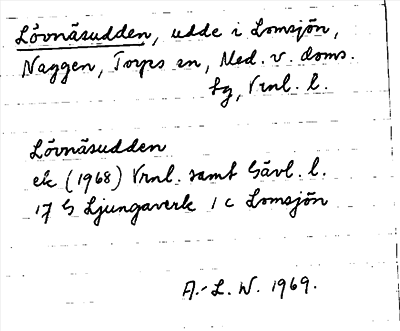 Lövnäsudden, udde i Lomsjön,
Naggen, Torps sn, Med. v. doms.
lg, Vrnl. l.
Lövnäsudden
ek (1968) Vrnl. samt Gävl. l.
17 G Ljungaverk 1 c Lomsjön
A.-L. W. 1969.